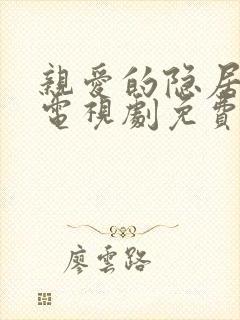 親愛的隐居
電視劇免費
廖雲路